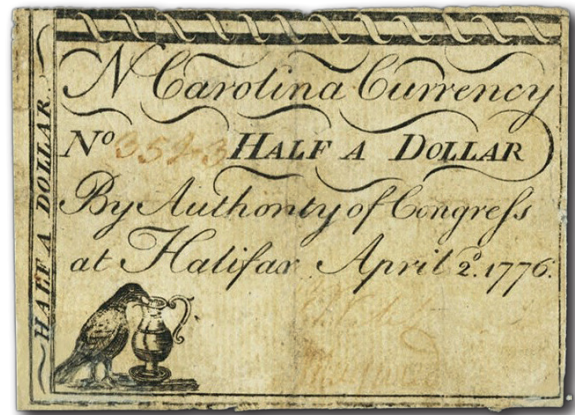 N Carolina Currency
No 3523 HALF A DOLLAR
By Authority of Congress
at Halifax April 2d. 1776.
HALF A DOLLAR